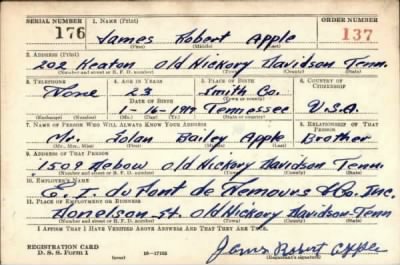 SERIAL NUMBER 1. NAME (Print) ORDER NUMBER
176 James Robert Apple 137
(First) (Middle) (Last)
2. ADDRESS (Print)
202 Keaton Old Hickory Davidson Tenn.
(Number and street or R. F. D. number) (Town) (County) (State)
3. TELEPHONE 4. AGE IN YEARS 5. PLACE OF BIRTH 6. COUNTRY OF CITIZENSHIP
None 23 Smith Co.
DATE OF BIRTH (Town or county)
1-16- Tennessee U.S.A.
(Exchange) (Number) (Mo.) (Day) (Yr.) (State or country)
7. NAME OF PERSON WHO WILL ALWAYS KNOW YOUR ADDRESS 8. RELATIONSHIP OF THAT PERSON
Mr. Bailey Apple Brother
(Mr., Mrs., Miss) (First) (Middle) (Last)
9. ADDRESS OF THAT PERSON
1509 Old Hickory Davidson Tenn.
(Number and street or R. F. D. number) (Town) (County) (State)
10. EMPLOYER'S NAME
E. I. du Pont de Nemours & Co. Inc.
11. PLACE OF EMPLOYMENT OR BUSINESS
Donelson-St. Old Hickory Davidson-Tenn
(Number and street or R. F. D. number) (Town) (County) (State)
I AFFIRM THAT I HAVE VERIFIED ABOVE ANSWERS AND THAT THEY ARE TRUE.
REGISTRATION CARD
D. S. S. Form 1 (over) 16-17105 James Robert Apple
(Registrant's signature)